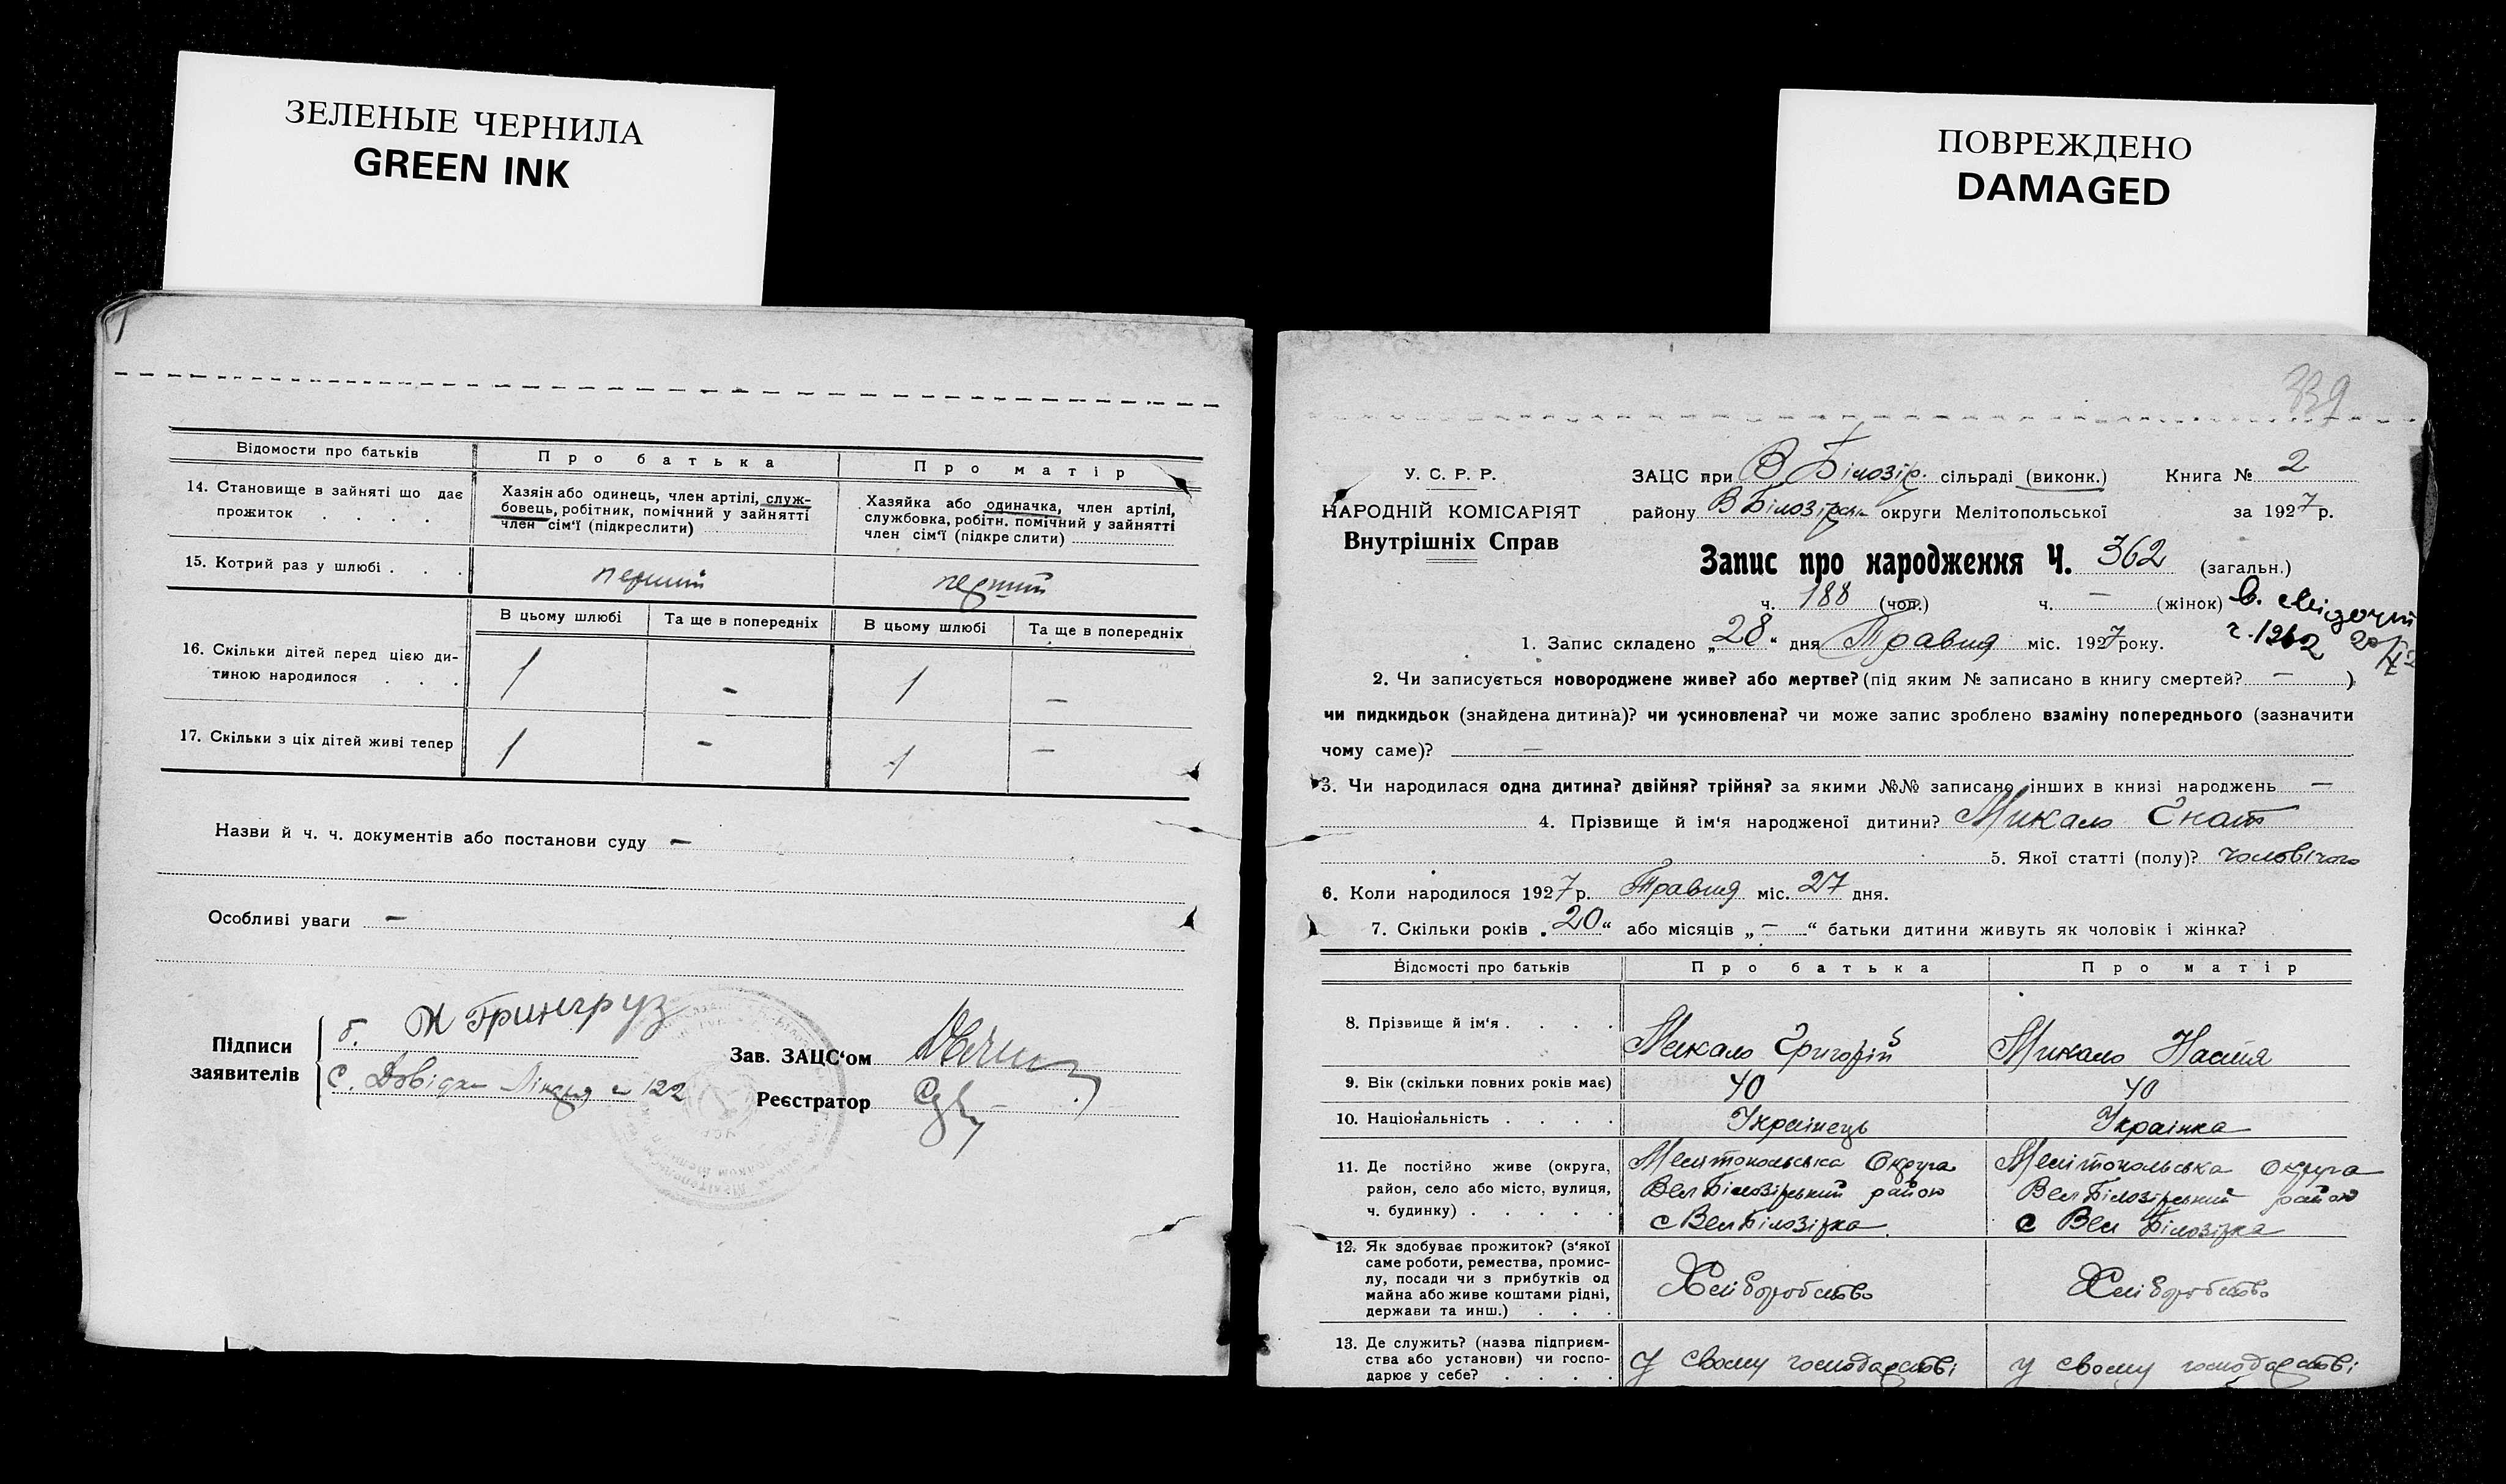 ЗЕЛЕНЫЕ ЧЕРНИЛА
GREEN INK
ПОВРЕЖДЕНО
DAMAGED
Відомости про батьків Про батька Про матір
14. Становище в зайняті що дає прожиток . . . .
Хазяін або одинець, член артілі, служ-
бовець, робітник, помічний у зайнятті
член сім'ї (підкреслити)
Хазяйка або одиначка, член артілі,
службовка, робітн. помічний у зайнятті
член сім'ї (підкре слити)
15. Котрий раз у шлюбі . . . перший перший
В цьому шлюбі Та ще в попередніх В цьому шлюбі Та ще в попередніх
16. Скільки дітей перед цією ди-
тиною народилося . . . 1 - 1 -
17. Скільки з ціх дітей живі тепер 1 - 1 -
Назви й ч. ч. документів або постанови суду -
Особливі уваги -
Підписи
заявителів
б. Ж Грингруз
с. 122
Зав. ЗАЦС'ом
Реєстратор
339
У. С. Р. Р.
НАРОДНІЙ КОМІСАРІЯТ
Внутрішніх Справ
ЗАЦС при В Білозір. сільраді (виконк.) Книга № 2
району В Білозірськ округи Мелітопольської за 1927 р.
Запис про народження Ч. 362 (загальн.)
ч. 188 (чол.) ч. — (жінок)
1. Запис складено „28" дня Травня міс. 1927 року.
2. Чи записується новороджене живе? або мертве? (під яким № записано в книгу смертей? — )
чи пидкидьок (знайдена дитина)? чи усиновлена? чи може запис зроблено взаміну попереднього (зазначити
чому саме)? —
3. Чи народилася одна дитина? двійня? трійня? за якими №№ записано інших в книзі народжень —
4. Прізвище й ім'я народженої дитини? Микало Гнат
5. Якої статті (полу)? чоловічого
6. Коли народилося 1927 р. Травня міс. 27 дня.
7. Скільки років „20" або місяців „—" батьки дитини живуть як чоловік і жінка?
Відомості про батьків Про батька Про матір
8. Прізвище й ім'я . . . . Микало Григорій Микало Настя
9. Вік (скільки повних років має) 40 40
10. Національність . . . . Українець Українка
11. Де постійно живе (округа,
район, село або місто, вулиця,
ч. будинку) . . . . .
Мелітопольська Округа
Вел Білозірський район
с Вел Білозірка
Мелітопольська округа
Вел Білозірський район
с Вел Білозірка
12. Як здобуває прожиток? (з'якої
саме роботи, ремества, промис-
лу, посади чи з прибутків од
майна або живе коштами рідні,
держави та инш.) . . .
Хліборобство Хліборобство
13. Де служить? (назва підприєм-
ства або установи) чи госпо-
дарює у себе? . . . .
У своему господарстві у своему господарстві